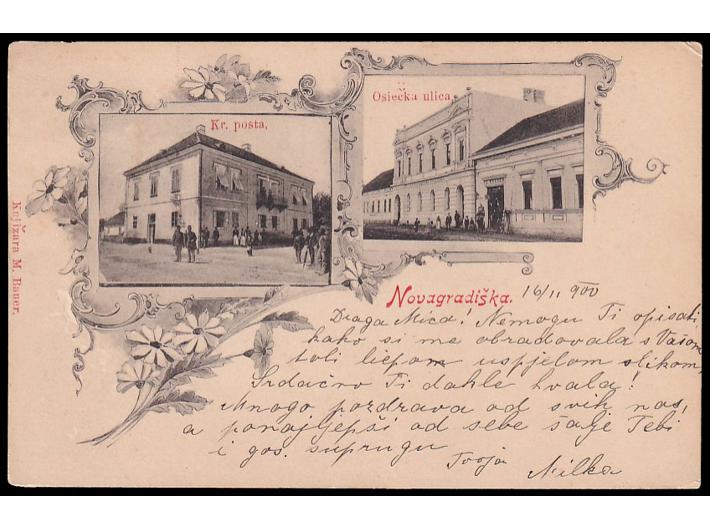 Kr. posta,
Osiečka ulica
Knjižara M. Bauer.
Novagradiška.
16/11 900
Draga Mica! Nemogu Ti opisati,
kako si me obradovala s Vašom
toli liepom uspjelom slikom,
Srdačno Ti dakle hvala!
Mnogo pozdrava od svih nas,
a ponajljepši od sebe šalje Tebi
i gos. suprugu
Tvoja Milka